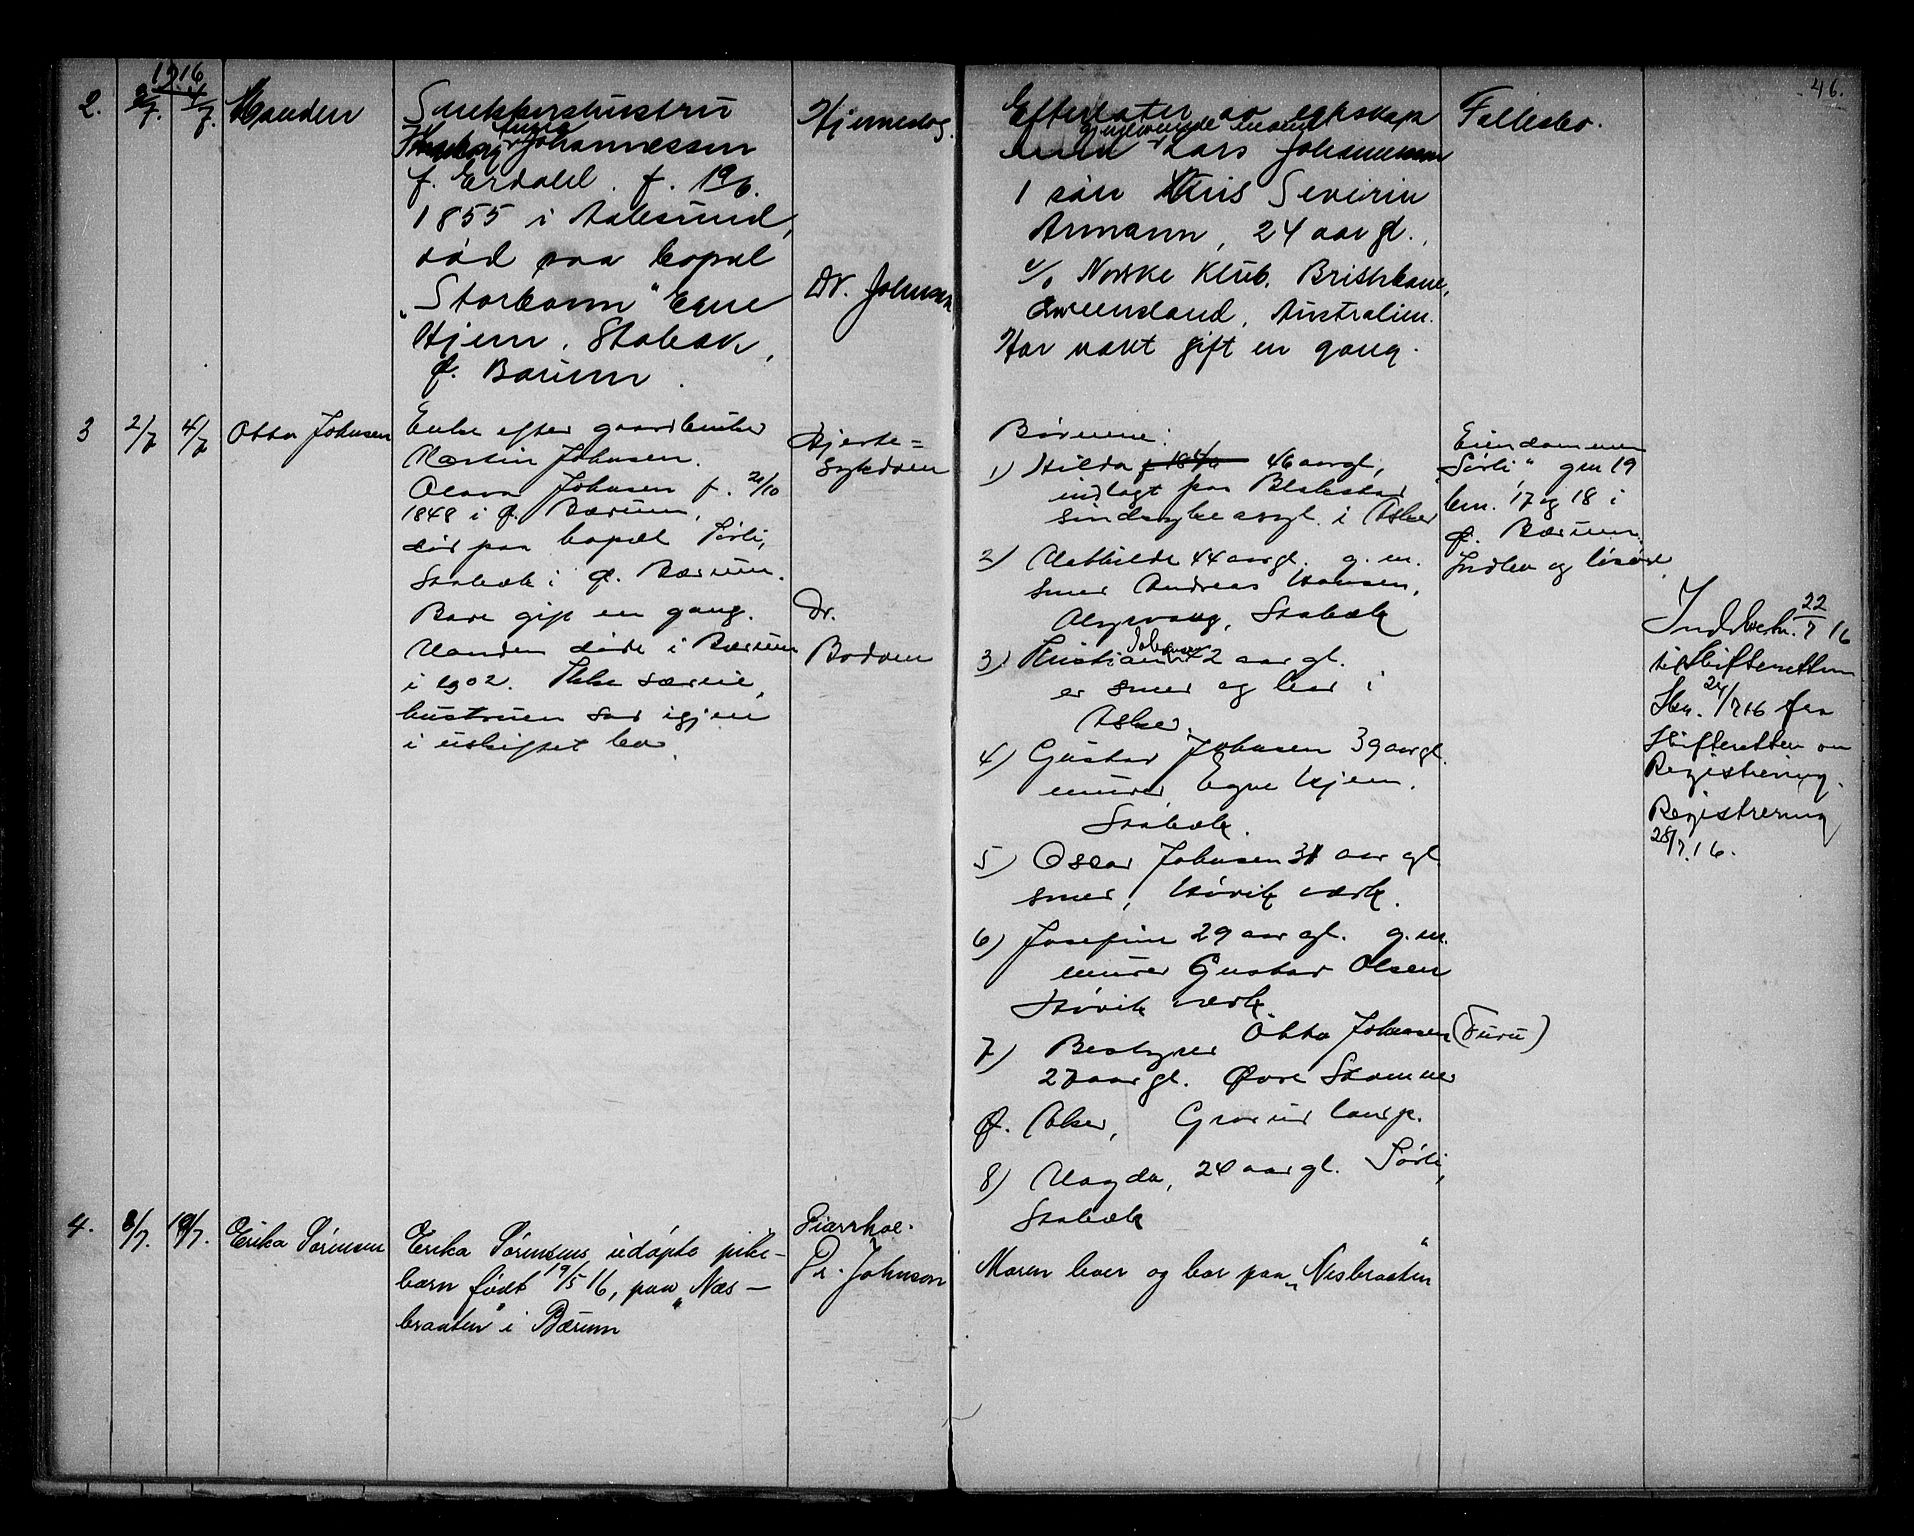 46.
1916
2.
2/7.
4/7.
Manden
Snekkerhustru
Johannessen
f. Erdahl. f. 19/6.
1855 i Aalesund,
død paa bopæl
"Storhaven" Egne
Hjem, Stabæk,
Ø. Bærum.
Hjerneslag.
Dr. Johnson
Efterlater av egteskap
med gjenlevende mand Lars Johannessen
1 søn Kris Severin
Armann, 24 aar gl.,
c/o Norske Klub. Brishbane,
Queensland, Australien.
Har vært gift en gang.
Fællesbo.
3
2/7
4/7
Otto Johnsen
Enke efter gaardbruker
Martin Johnsen.
Olava Johnsen f. 21/10
1848 i Ø. Bærum,
død paa bopæl Sørli,
Stabæk i Ø. Bærum.
Bare gift en gang.
Manden døde i Bærum
i 1902. Ikke særeie,
hustruen sad igjen
i uskiftet bo.
Hjerte=
sykdom
Dr.
Børnene:
1) Hilda 46 aar gl,
indlagt paa Blakstad
sindssykeasyl. i Asker
2) Mathilde 44 aar gl. g. m.
smed Andreas Hansen,
Stabæk
3) Kristian Johnsen 42 aar gl.
er smed og bor i
Asker.
4) Gustav Johnsen 39 aar gl.
murer, Egne Hjem.
Stabæk.
5) Oscar Johnsen 31 aar gl
smed, Høvik værk.
6) Josefine 29 aar gl. g. m.
murer Gustav Olsen
Høvik værk.
7) Bestyrer Otto Johnsen (Furu)
27 aar gl. Øvre Stammer
Ø. Aker, Grorud landp.
8) Magda, 24 aar gl. Sørli,
Stabæk
Eiendommen
"Sørli" gm 19
bm. 17 og 18 i
Ø. Bærum.
Indbo og løsøre.
Indber. 22/7 16
til Skifteretten
Skr. 24/7 16 fra
Skifteretten om
Registrering.
Registrering
28/7.16.
4.
8/7.
19/7.
Erika Sørensen
Erika Sørensens udøpte pike-
barn født 19/5 16, paa "Næs-
braaten" i Bærum
Diarrhoe.
Dr. Johnson
Moren lever og bor paa "Nesbraaten"